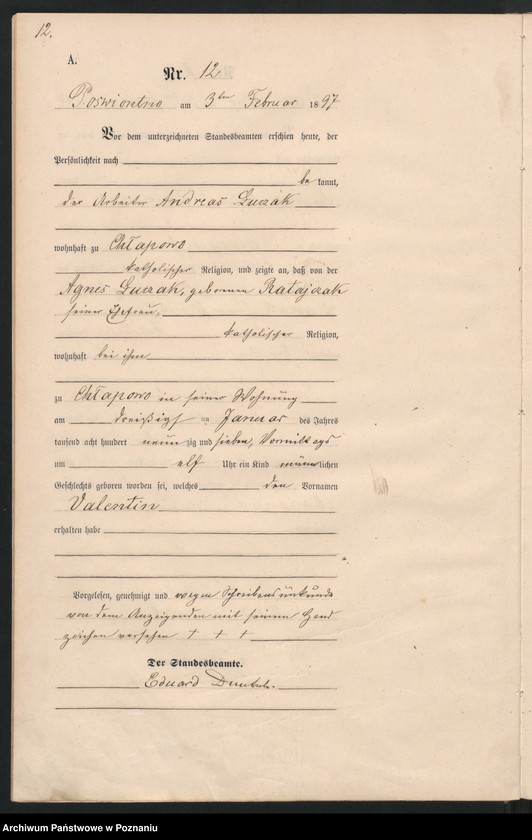 12.
A.
Nr. 12
Poswiontno am 3ten Februar 1897
Vor dem unterzeichneten Standesbeamten erschien heute, der
Persönlichkeit nach
be kannt,
der Arbeiter Andreas Luczak
wohnhaft zu Chłapowo
katholischer Religion, und zeigte an, daß von der
Agnes Luczak, geborenen Ratajczak
seiner Ehefrau,
katholischer Religion,
wohnhaft bei ihm
zu Chłapowo in seiner Wohnung
am dreißigst en Januar des Jahres
tausend acht hundert neun zig und sieben, Vormittags
um elf Uhr ein Kind männlichen
Geschlechts geboren worden sei, welches den Vornamen
Valentin
erhalten habe
Vorgelesen, genehmigt und wegen Schreibensunkunde
von dem Anzeigenden mit seinem Hand
zeichen versehen + + +
Der Standesbeamte.
Eduard
Archiwum Państwowe w Poznaniu